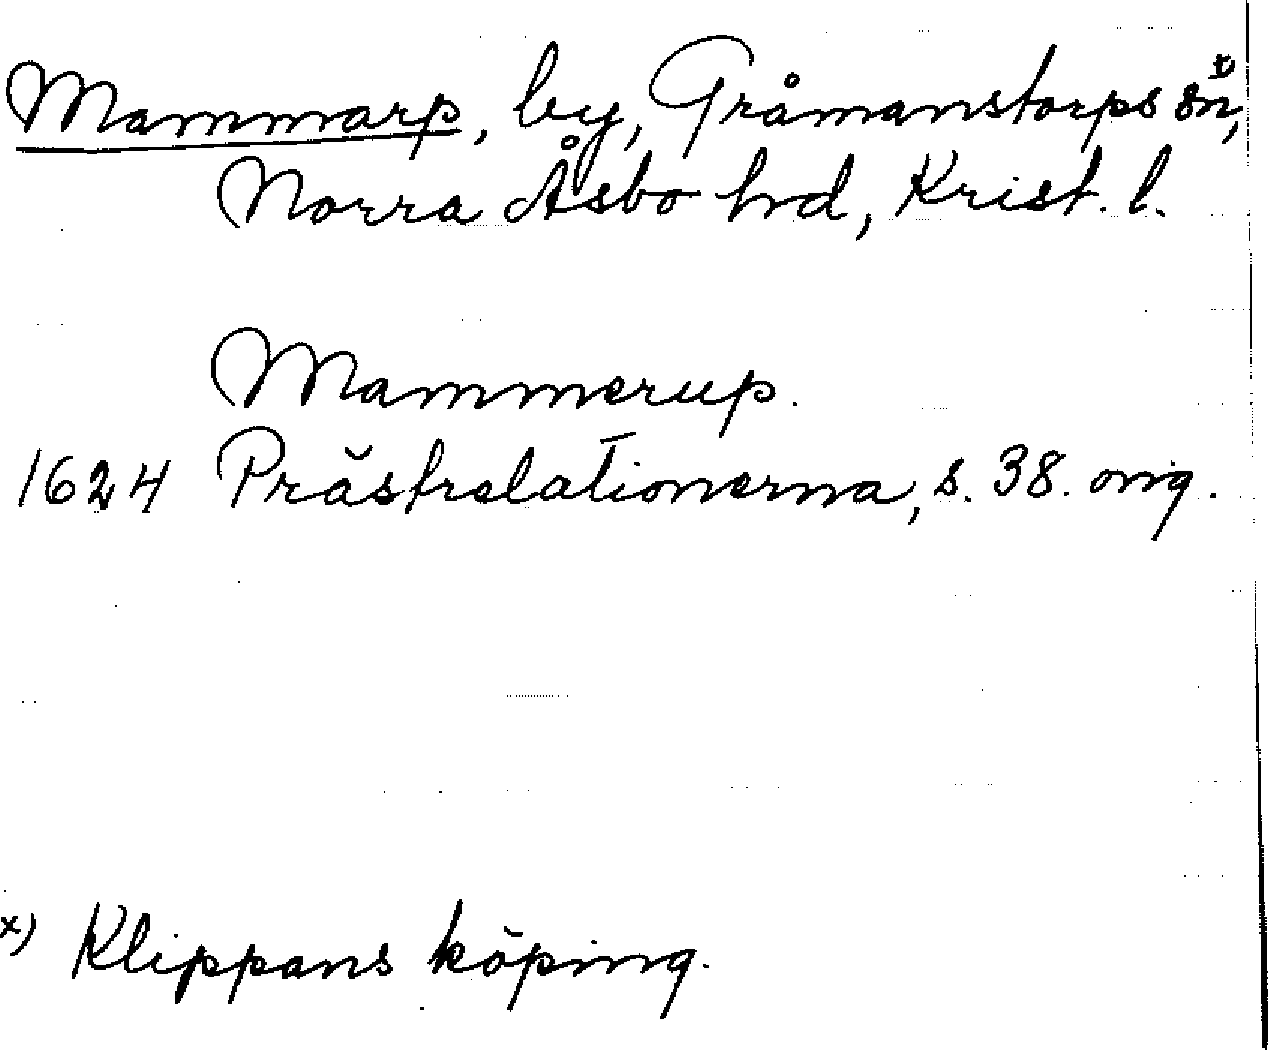 Mammarp, by, Gråmanstorps sn x),
Norra Åsbo hd, Krist. l.
Mammerup.
1624 Prästrelationerna, s. 38. orig.
x) Klippans köping.